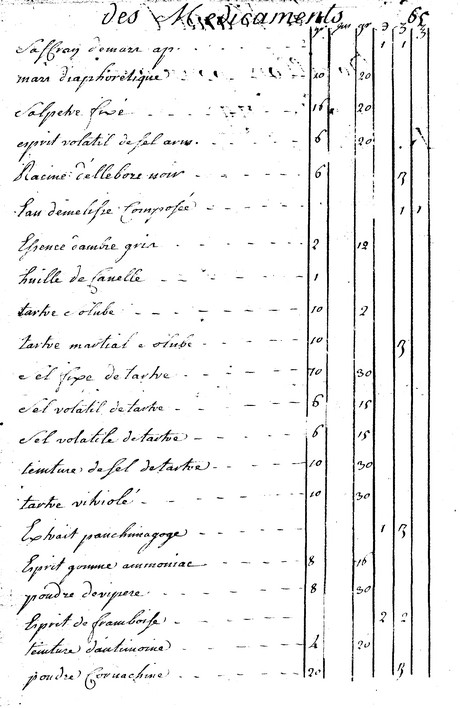 des Medicaments 65
gr gr ℈ ʒ ℥
Saffran demars ap. 1 1
mars diaphoretique 10 20
Salpetre fixé 16 20
esprit volatil de sel arm. 6 20
Racine d'ellebore noir 6 ß
Eau demelisse Composée 1 1
Essence d'ambre gris 2 12
huille de Canelle 1
tartre solube 10 2
tartre martial solube 10 ß
sel fixe de tartre 10 30
Sel volatil de tartre 6 15
Sel volatile de tartre 6 15
teinture de sel de tartre 10 30
tartre vitriolé 10 30
Extrait panchimagoge 1 ß
Esprit gomme ammoniac 8 16
poudre de vipere 8 30
Esprit de framboise 2 2
teinture d'antimoine 4 20
poudre Cornachine 20 ß